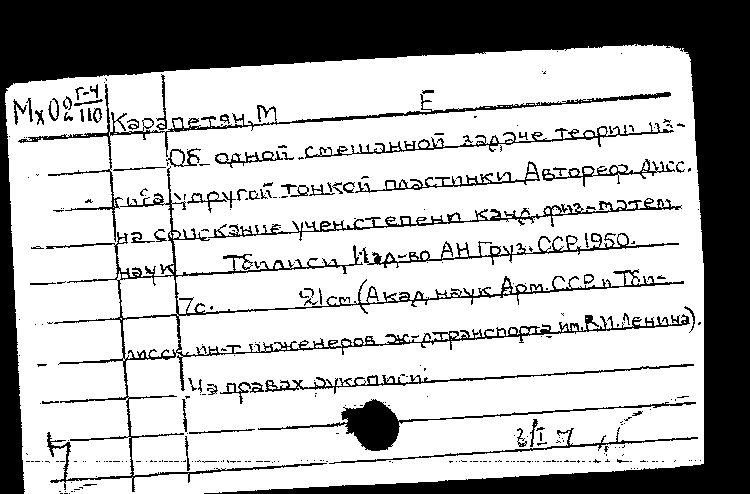 Мх02 Г-4/110
Карапетян, М Е
Об одной смешанной задаче теории из-
гиба упругой тонкой пластинки Автореф. дисс.
на соискание учен. степени канд. физ-матем.
наук. Тбилиси, Изд-во АН Груз. ССР, 1950.
7с. 21см. (Акад. наук Арм. ССР и Тби-
лисск. ин-т инженеров ж-д транспорта им. В.И. Ленина).
На правах рукописи.